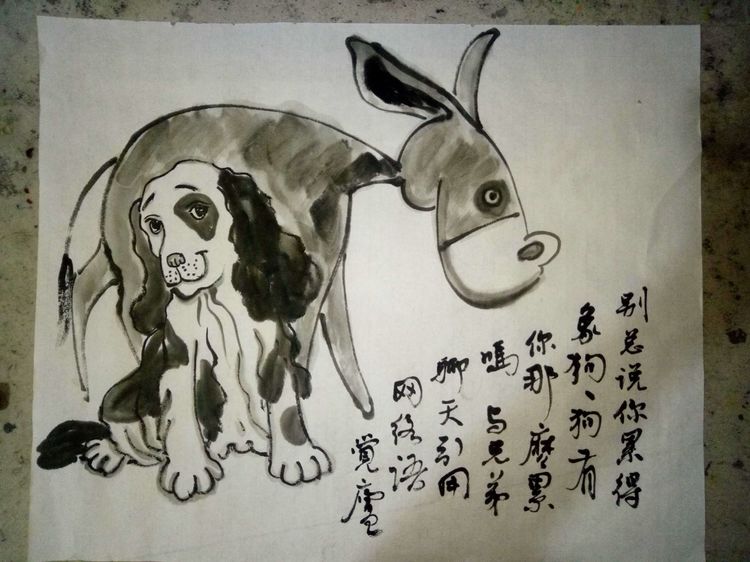 别总说你累得
象狗、狗有
你那麽累
吗 与兄弟
聊天引用
网络语
觉庐